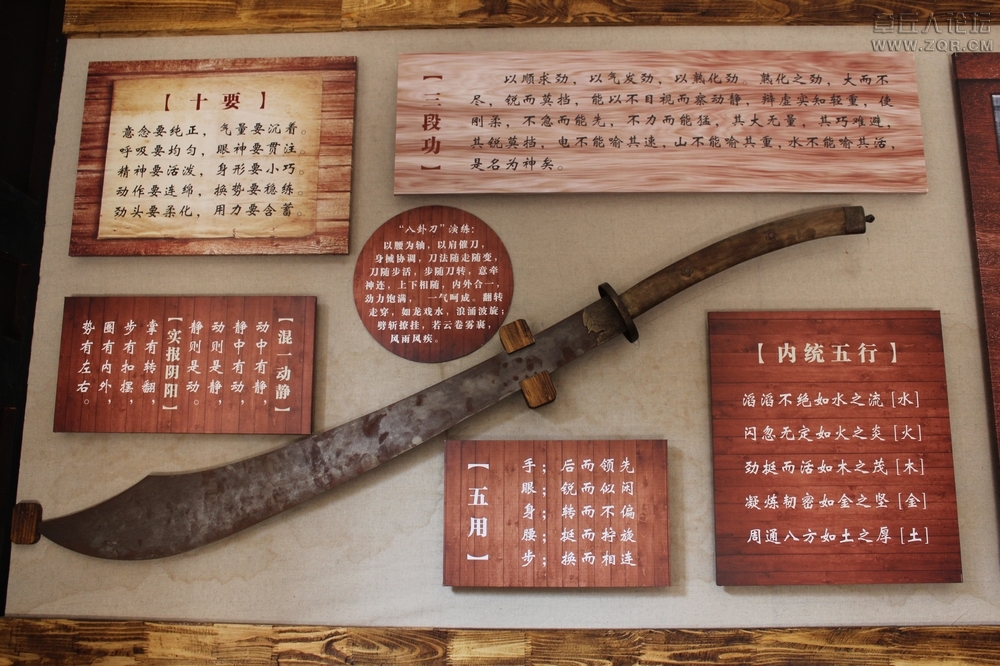 章丘人论坛
WWW.ZQR.CM
【十要】
意念要纯正，气量要沉着。
呼吸要均匀，眼神要贯注
精神要活泼，身形要小巧。
动作要连绵，换势要稳练。
劲头要柔化，用力要含蓄。
【三段功】
以顺求劲，以气发劲，以熟化劲。熟化之劲，大而不
尽，锐而莫挡，能以不目视而察动静，辩虚实知轻重，使
刚柔，不急而能先，不力而能猛，其大无量，其巧难避，
其锐莫挡，电不能喻其速，山不能喻其重，水不能喻其活，
是名为神矣。
“八卦刀”演练：
以腰为轴，以肩催刀，
身械协调，刀法随走随变，
刀随步活，步随刀转，意牵
神连，上下相随，内外合一，
劲力饱满，一气呵成。翻转
走穿，如龙戏水，浪涌波旋；
劈斩撩挂，若云卷雾裹，
风雨风疾。
【混一动静】
动中有静，
静中有动，
动则是静，
静则是动。
【实报阴阳】
掌有转翻，
步有扣摆，
圈有内外，
势有左右。
【五用】
手；后而领先
眼；锐而似闲
身；转而不偏
腰；挺而拧旋
步；换而相连
【内统五行】
滔滔不绝如水之流[水]
闪忽无定如火之炎[火]
劲挺而活如木之茂[木]
凝炼韧密如金之坚[金]
周通八方如土之厚[土]